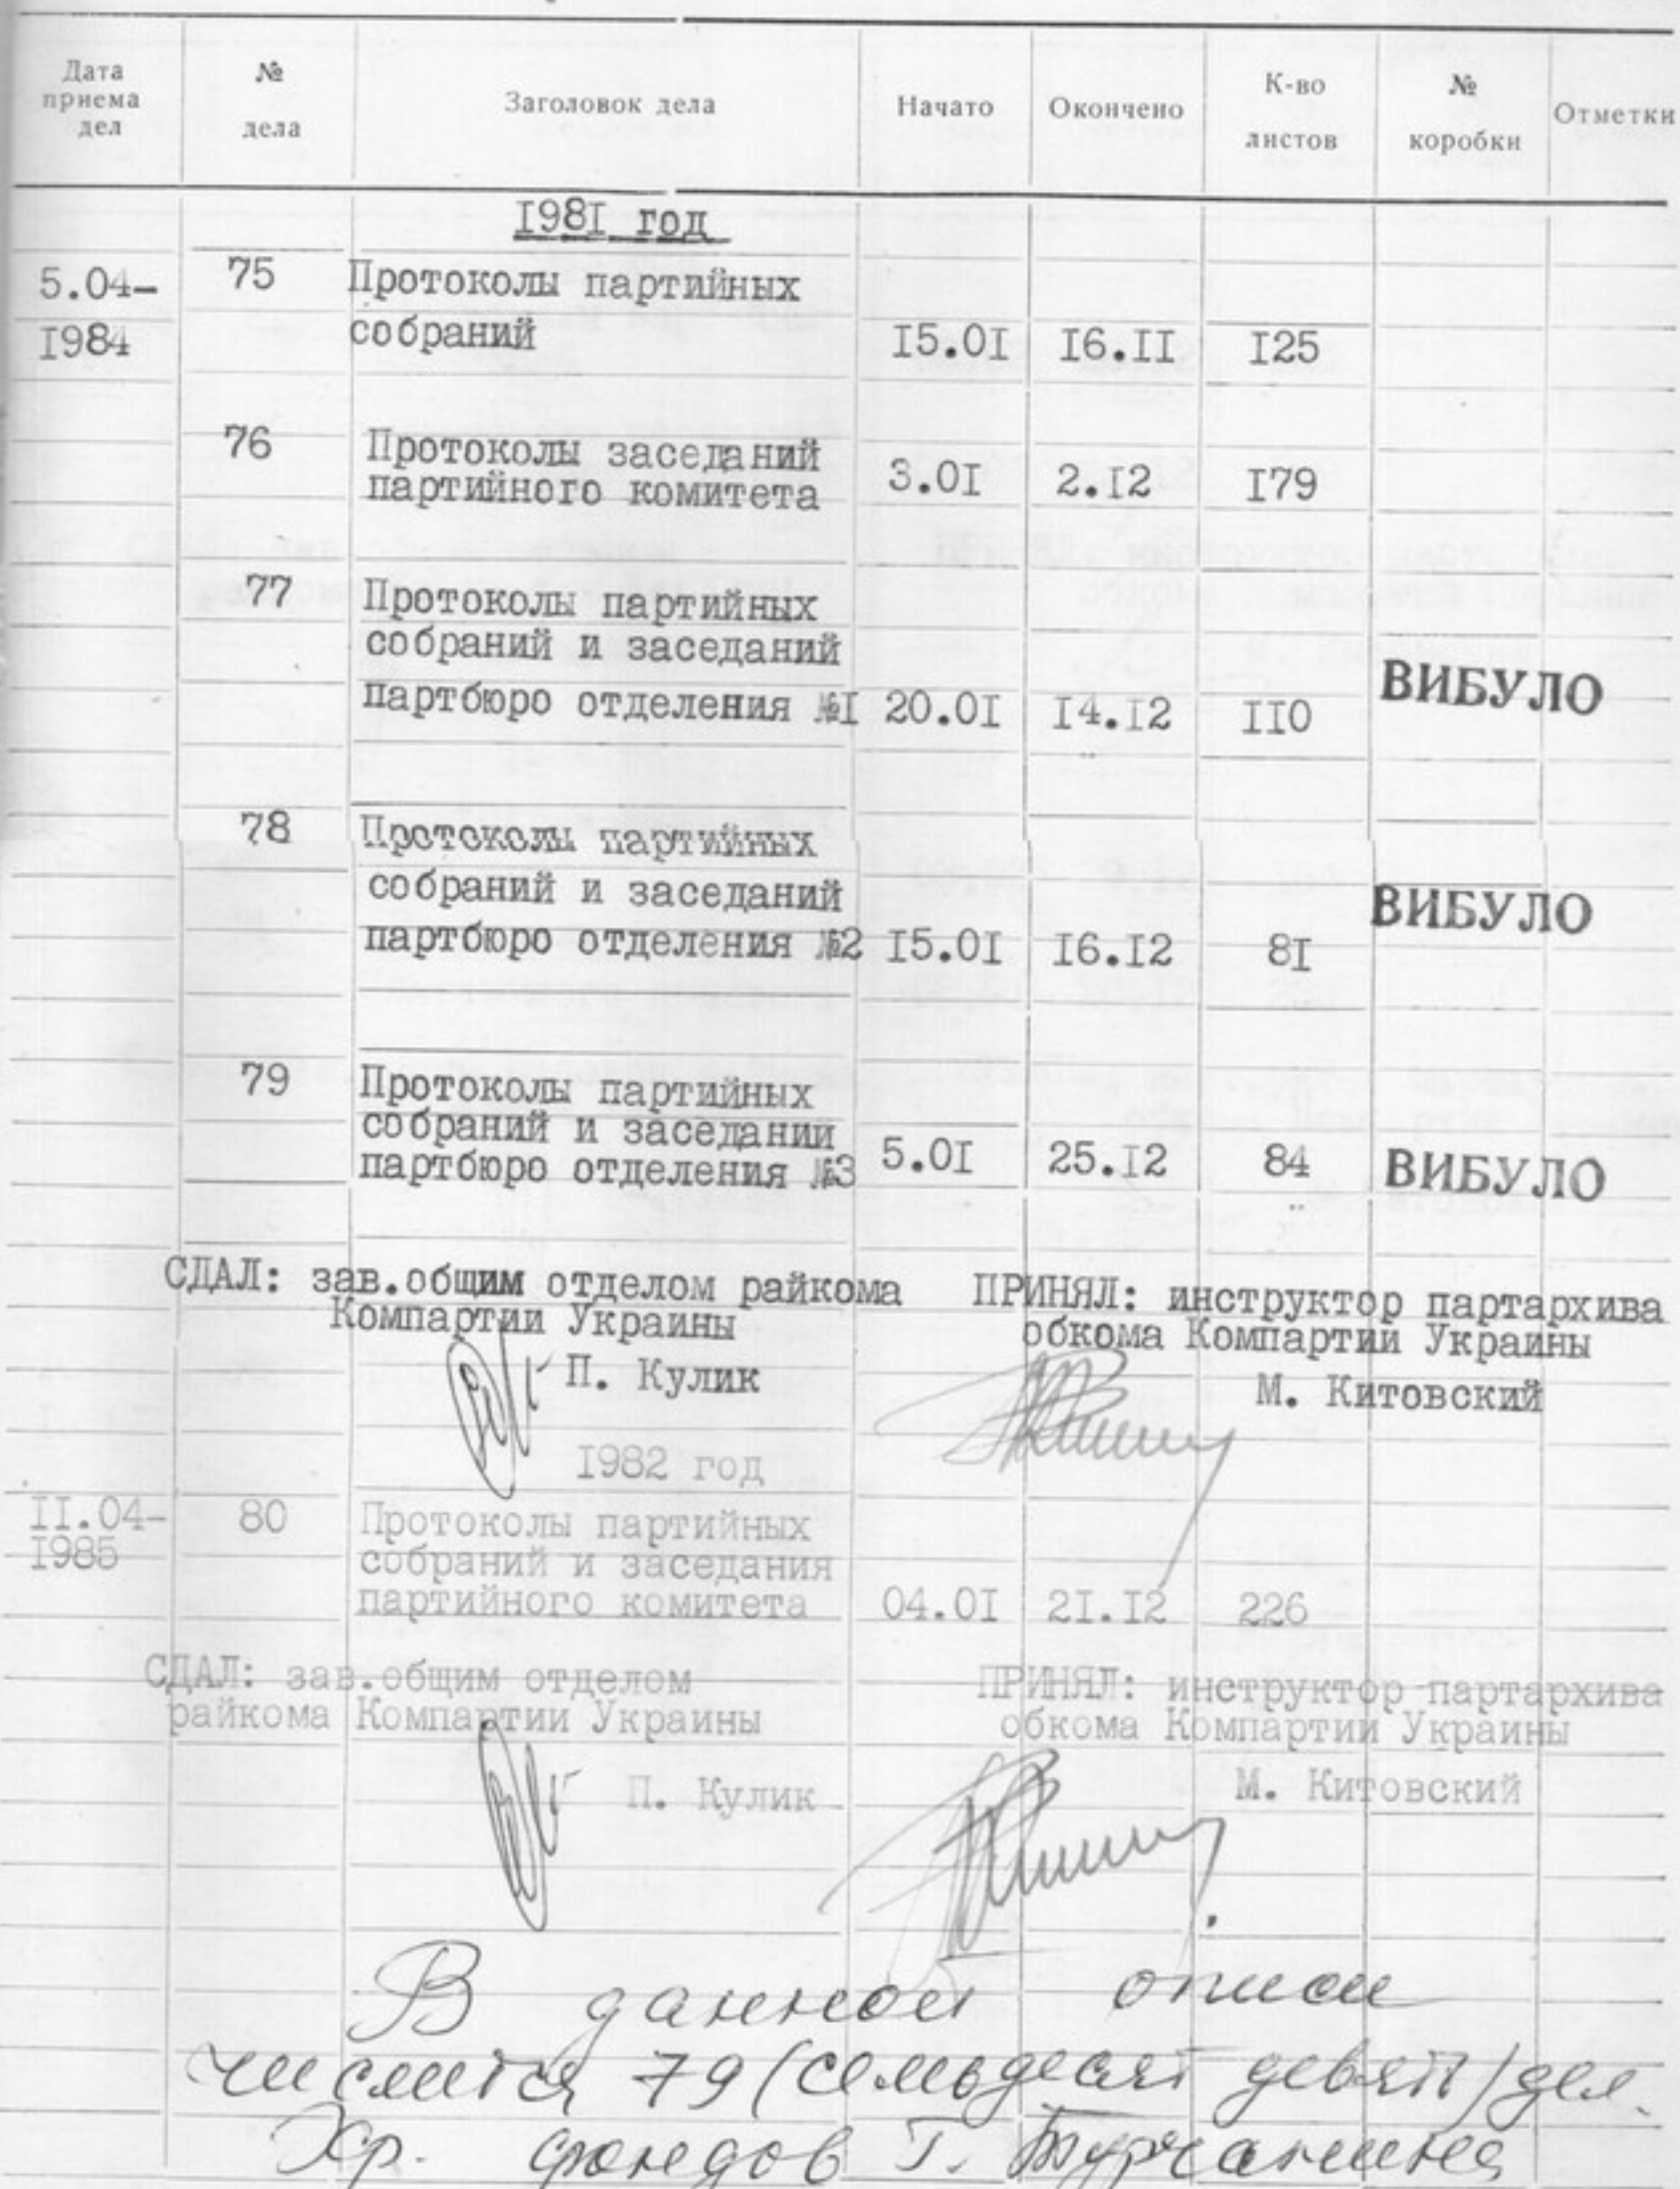 Дата приема дел № дела Заголовок дела Начато Окончено К-во листов № коробки Отметки
1981 год
5.04- 75 Протоколы партийных
1984 собраний 15.01 16.11 125
76 Протоколы заседаний
партийного комитета 3.01 2.12 179
77 Протоколы партийных
собраний и заседаний
партбюро отделения №1 20.01 14.12 110 ВИБУЛО
78 Протоколы партийных
собраний и заседаний
партбюро отделения №2 15.01 16.12 81 ВИБУЛО
79 Протоколы партийных
собраний и заседаний
партбюро отделения №3 5.01 25.12 84 ВИБУЛО
СДАЛ: зав.общим отделом райкома ПРИНЯЛ: инструктор партархива
Компартии Украины обкома Компартии Украины
П. Кулик М. Китовский
1982 год
11.04- 80 Протоколы партийных
1985 собраний и заседания
партийного комитета 04.01 21.12 226
СДАЛ: зав.общим отделом ПРИНЯЛ: инструктор партархива
райкома Компартии Украины обкома Компартии Украины
П. Кулик М. Китовский
В данной описи
числится 79 (семьдесят девять) дел.
Хр. фондов Т. Турчанина